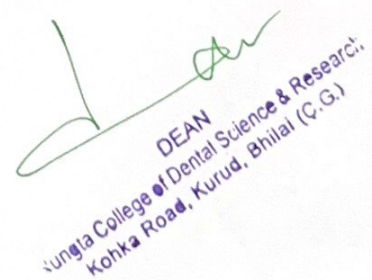 DEAN
ungta College of Dental Science & Research
Kohka Road, Kurud, Bhilai (C.G.)